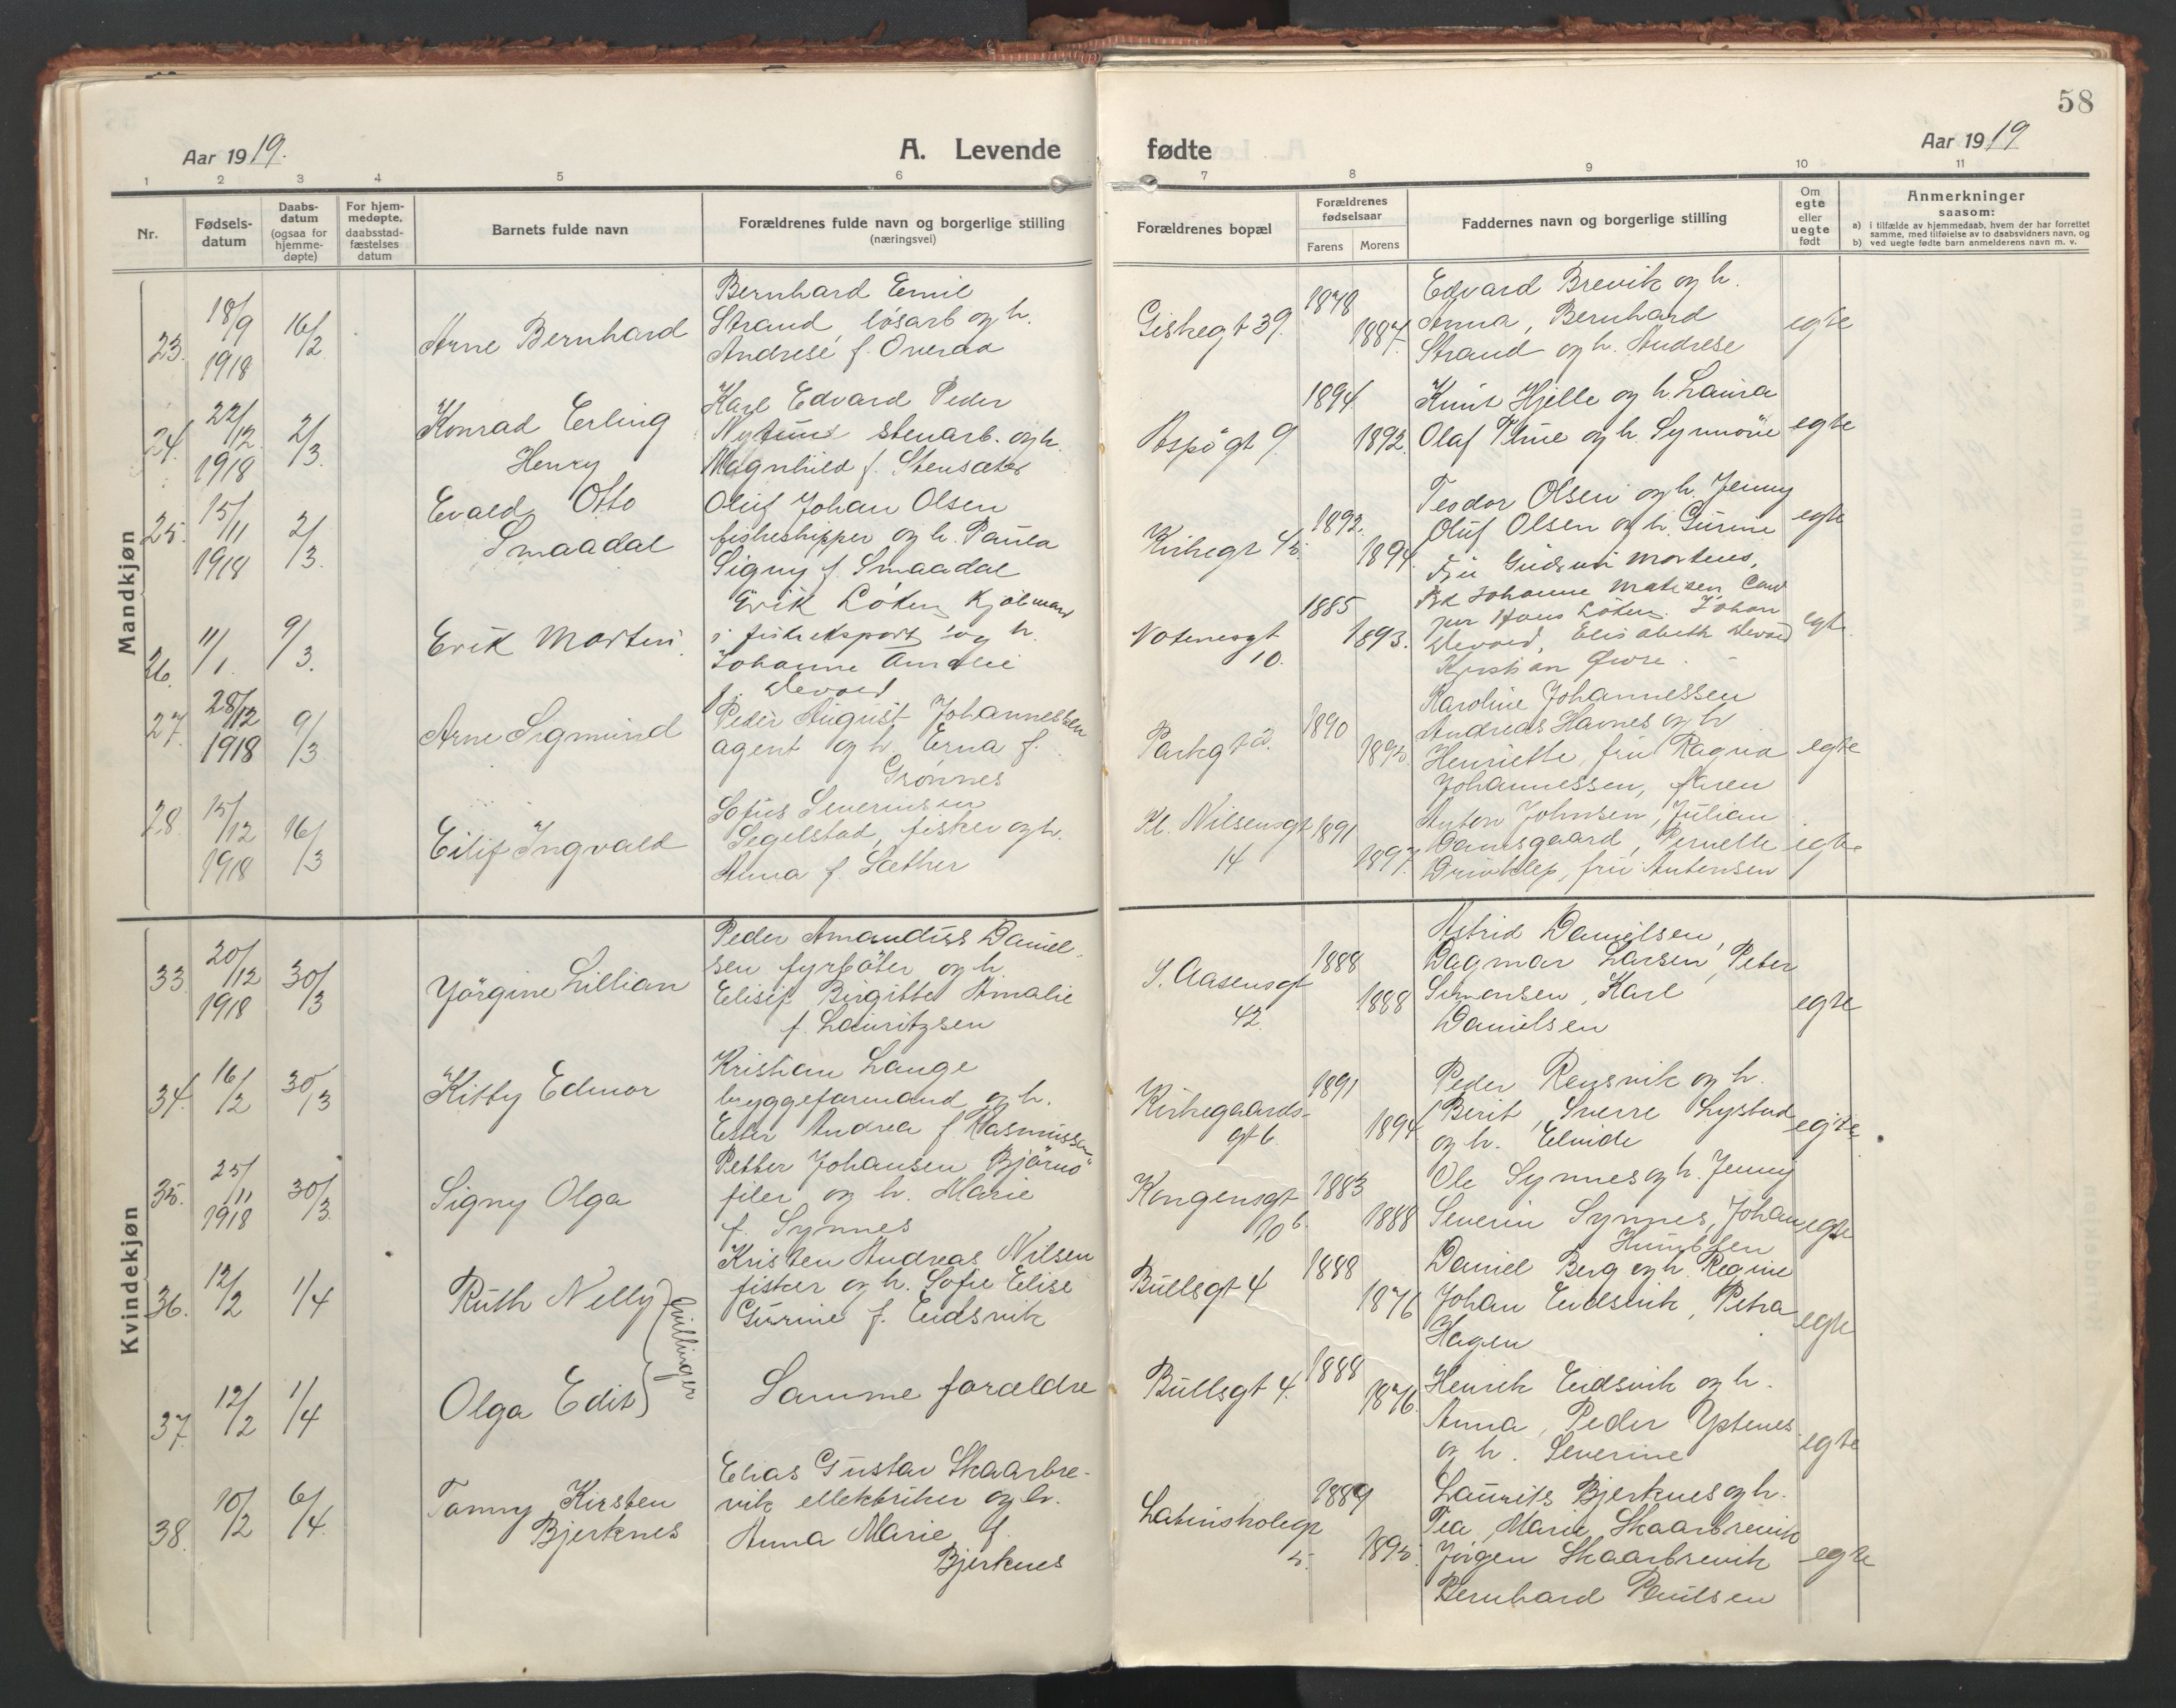 58
Aar 1919.
A. Levende fødte
Aar 1919
1 2 3 4 5 6 7 8 9 10 11
Nr.
Fødsels-
datum
Daabs-
datum
(ogsaa for
hjemme-
døpte)
For hjem-
medøpte,
daabsstad-
fæstelses
datum
Barnets fulde navn
Forældrenes fulde navn og borgerlige stilling
(næringsvei)
Forældrenes bopæl
Forældrenes
fødselsaar
Farens Morens
Faddernes navn og borgerlige stilling
Om
egte
eller
uegte
født
Anmerkninger
saasom:
a) i tilfælde av hjemmedaab, hvem der har forrettet
samme, med tilføielse av to daabsvidners navn, og
b) ved uegte fødte barn anmelderens navn m. v.
Mandkjøn
23.
18/9
1918
16/2
Arne Bernhard
Bernhard Emil
Strand, løsarb og h.
Andrese f. Overaa
Giskegt 39.
1878
1887.
Edvard Brevik og h.
Anna, Bernhard
Strand og h. Andrese
egte
24.
22/12
1918
2/3.
Konrad Erling
Henry
Karl Edvard Peder
stenarb. og h.
Magnhild f. Stensæter
Aspøgt 9.
1894
1892.
Knut Hjelle og h. Laura
Olaf og h. Synnøve
egte
25.
15/11
1918
2/3.
Evald Otto
Smaadal
Oluf Johan Olsen
fiskeskipper og h. Paula
Signy f. Smaadal
Kirkegt 45.
1892.
1894.
Teodor Olsen og h. Jenny
Oluf Olsen og h. Gurine
egte
26.
11/1.
9/3.
Erik Morten.
Erik Løken, Kjøbmand
i fiskeksport og h.
Johanne Amalie
f. Devold
Notenesgt
10.
1885
1893.
Fru Gudrun Mortens,
Johanne Matisen, Cand
jur Hans Løken, Johan
Devold, Elisabeth Devold
Kristian Øwre.
egte
27.
28/12
1918
9/3
Arne Sigmund
Peder August Johannessen
agent og h. Erna f.
Grønnes
Parkgt 2.
1890
1895.
Karoline Johannessen
Andreas Havnes og h
Henriette, fru Ragna
Johannessen,
egte
28.
15/12
1918
16/3
Eilif Ingvald
Sofus Severinsen
Segelstad, fisker og h.
Anna f. Sæther
Kl. Nilsensgt
14
1891
1897.
Anton Johnsen, Julian
Damsgaard, Pernelle
Drivklep, fru Antonsen
egte
Kvindekjøn
33
20/12
1918
30/3
Yørgine Lillian
Peder Amandus Daniel-
sen fyrbøter og h.
Elisif Birgitte Amalie
f. Lauritzsen
I. Aasensgt
42.
1888
1888
Astrid Danielsen,
Dagmar Larsen, Peter
Simonsen, Karl
Danielsen
egte
34.
16/2
30/3
Kitty Edmor
Kristian Lange
bryggeformand og h.
Ester Andrea f. Rasmussen
Kirkegaards-
gt 6.
1891
1894
Peder Rensvik og h.
Berit, Sverre Lystad
og h. Elvide
egte
35.
25/11
1918
30/3.
Signy Olga
Petter Johansen Bjørnø
filer og h. Marie
f. Synnes
Kongensgt
10 b.
1883
1888
Ole Synnes og h. Jenny
Severin Synnes, Johan
Humblen
egte
36.
12/2
1/4
Ruth Nelly
Tvillinger
Kristen Andreas Nilsen
fisker og h. Sofie Elise
Gurine f. Eidsvik
Bullsgt 4
1888
1876
Daniel Berg og h. Regine
Johan Eidsvik, Petra
Hagen
egte
37.
12/2
1/4
Olga Edit
Samme forældre
Bullsgt 4.
1888
1876.
Henrik Eidsvik og h.
Anna, Peder Ystenes
og h. Severine
egte
38.
10/2
6/4.
Tanny Kirsten
Bjerknes
Elias Gustav Skaarbre-
vik ellektriker og h.
Anna Marie f.
Bjerknes
Latinskolegt
5.
1889
1895.
Laurits Bjerknes og h.
Tea, Marie Skaarbrevik
Jørgen Skaarbrevik
Bernhard Paulsen
egte